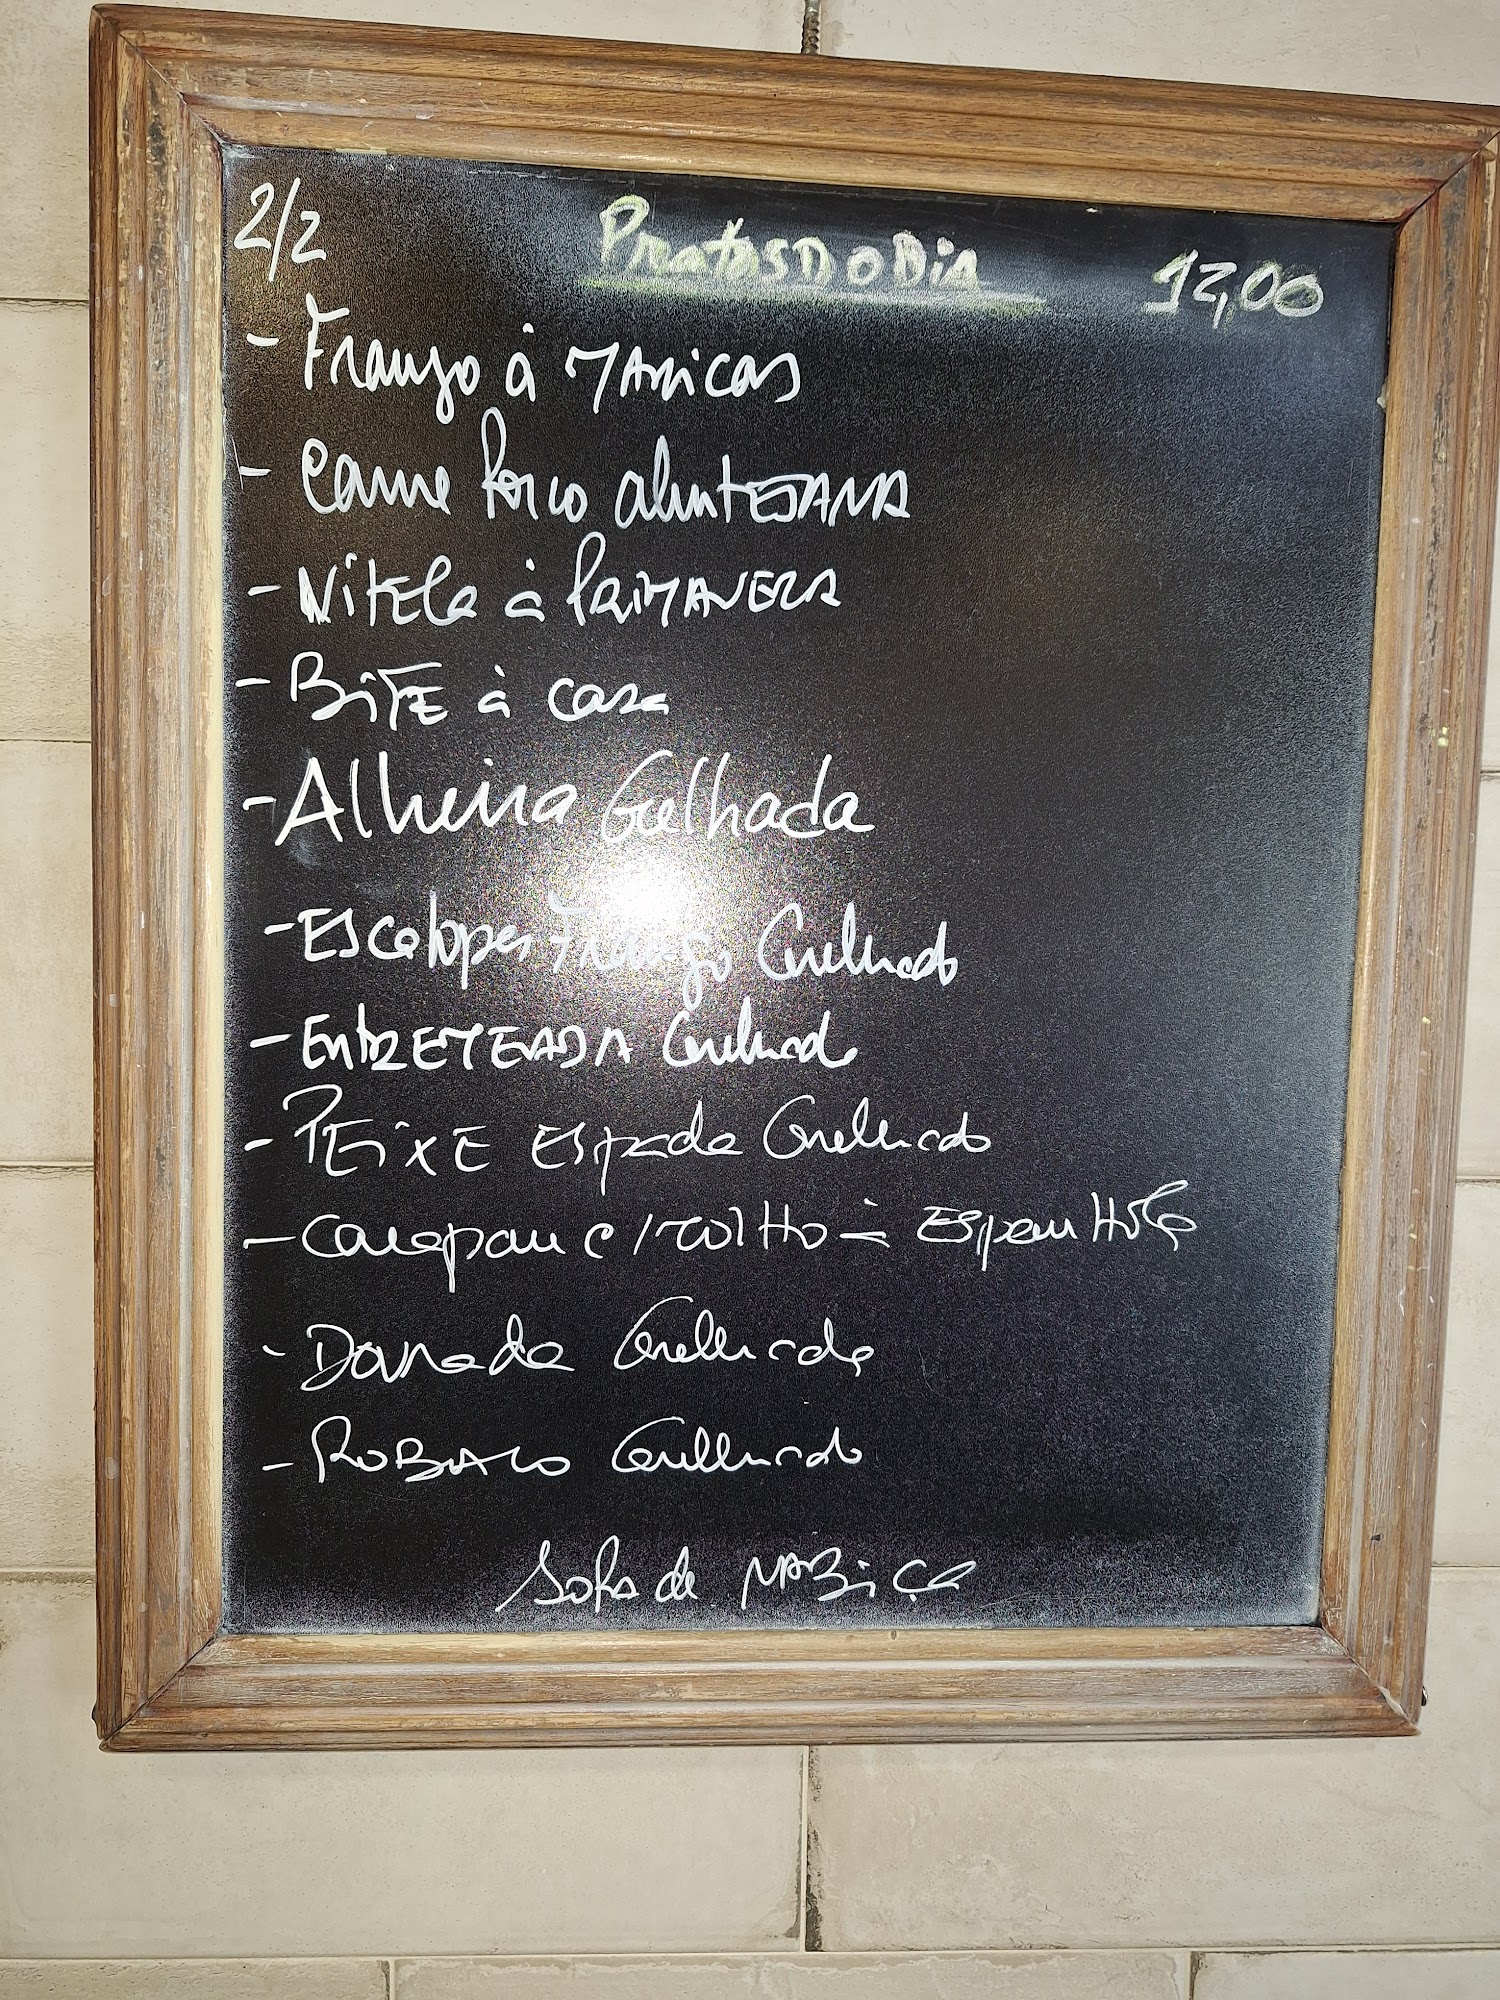 2/2 Pratos do Dia 12,00
- Frango à Maricas
- Carne Porco alentejana
- Vitela à Primavera
- Bife à casa
- Alheira Grelhada
- Escalopes Frango Grelhado
- Entremeada Grelhada
- Peixe Espada Grelhado
- Carapau c/ molho à Espanhola
- Dourada Grelhada
- Robalo Grelhado
Sopa de Nabiça